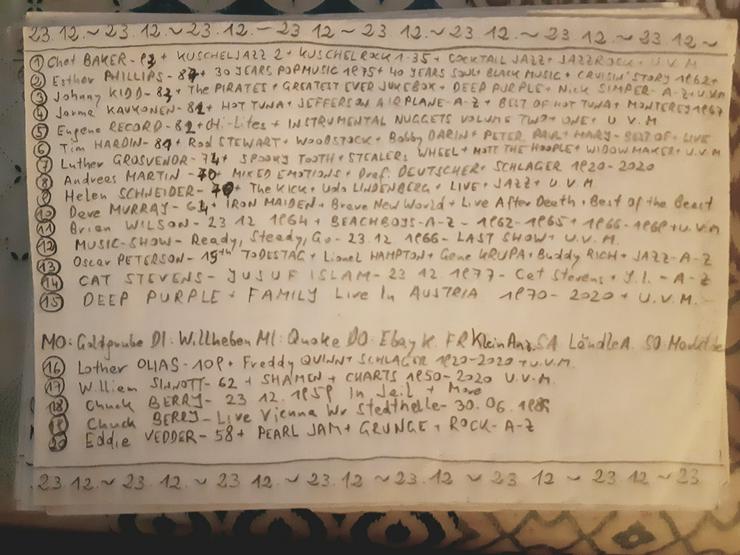 23.12.~23.12.~23.12.~23 12~23 12~23.12.~23.12.~23.12.~
① Chet BAKER- 92+ KUSCHELJAZZ 2+ KUSCHELROCK 1-35+ COCKTAIL JAZZ+ JAZZROCK+ U.V.M
② Esther PHILLIPS- 87+ 30 YEARS POPMUSIC 1975+ 40 YEARS SOUL BLACK MUSIC+ CRUISIN' STORY 1962+
③ Johnny KIDD- 82+ The PIRATES+ GREATEST EVER JUKEBOX+ DEEP PURPLE+ Nick SIMPER- A-Z+U.V.M
④ Jorma KAUKONEN- 81+ HOT TUNA+ JEFFERSON AIRPLANE-A-Z+ BEST OF HOT TUNA+ MONTEREY 1967
⑤ Eugene RECORD- 81+ CHi-Lites+ INSTRUMENTAL NUGGETS VOLUME TWO+ ONE+ U V.M
⑥ Tim HARDIN- 81+ Rod STEWART+ WOODSTOCK+ Bobby DARIN+ PETER PAUL+ MARY- BEST OF+ LIVE
⑦ Luther GROSVENOR- 74+ SPOOKY TOOTH+ STEALERS WHEEL+ MOTT THE HOOPLE+ WIDOWMAKER+ U.V.M
⑧ Andreas MARTIN- 70+ MIXED EMOTIONS+ Draf. DEUTSCHER+ SCHLAGER 1920-2020
⑨ Helen SCHNEIDER- 70+ The KICK+ Udo LINDENBERG+ LIVE+ JAZZ+ U.V.M.
⑩ Dave MURRAY- 64+ IRON MAIDEN+ Brave New World+ Live After Death+ Best Of the Beast
⑪ Brian WILSON- 23 12 1964+ BEACHBOYS-A-Z- 1962-1965+ 1966-1969+U.V.M
⑫ MUSIC-SHOW- Ready, Steady, Go- 23.12 1966- LAST SHOW+ U.V.M.
⑬ Oscar PETERSON- 15th TODESTAG+ Lionel HAMPTON+ Gene KRUPA+ Buddy RICH+ JAZZ-A-Z
⑭ CAT STEVENS- YUSUF ISLAM- 23 12 1977- Cat Stevens+ Y.I.- A-Z
⑮ DEEP PURPLE+ FAMILY Live In AUSTRIA 1970-2020+ U.V.M.
MO: Goldgrube DI: Willhaben MI: Quoke DO: Ebay K. FR Klein Anz. SA LändleA. SO Markt.de
⑯ Lothar OLIAS- 109+ Freddy QUINN+ SCHLAGER 1920-2020+U.V.M.
⑰ William SINNOTT- 62+ SHAMEN+ CHARTS 1950-2020 U.V.M.
⑱ Chuck BERRY- 23 12. 1959 In Jail+ More
⑲ Chuck BERRY- Live Vienna Wr Stadthalle- 30.06.
⑳ Eddie VEDDER- 58+ PEARL JAM+ GRUNGE+ ROCK-A-Z
23.12.~23 12.~23.12.~23 12~23 12~23 12~23 12~23 12~23